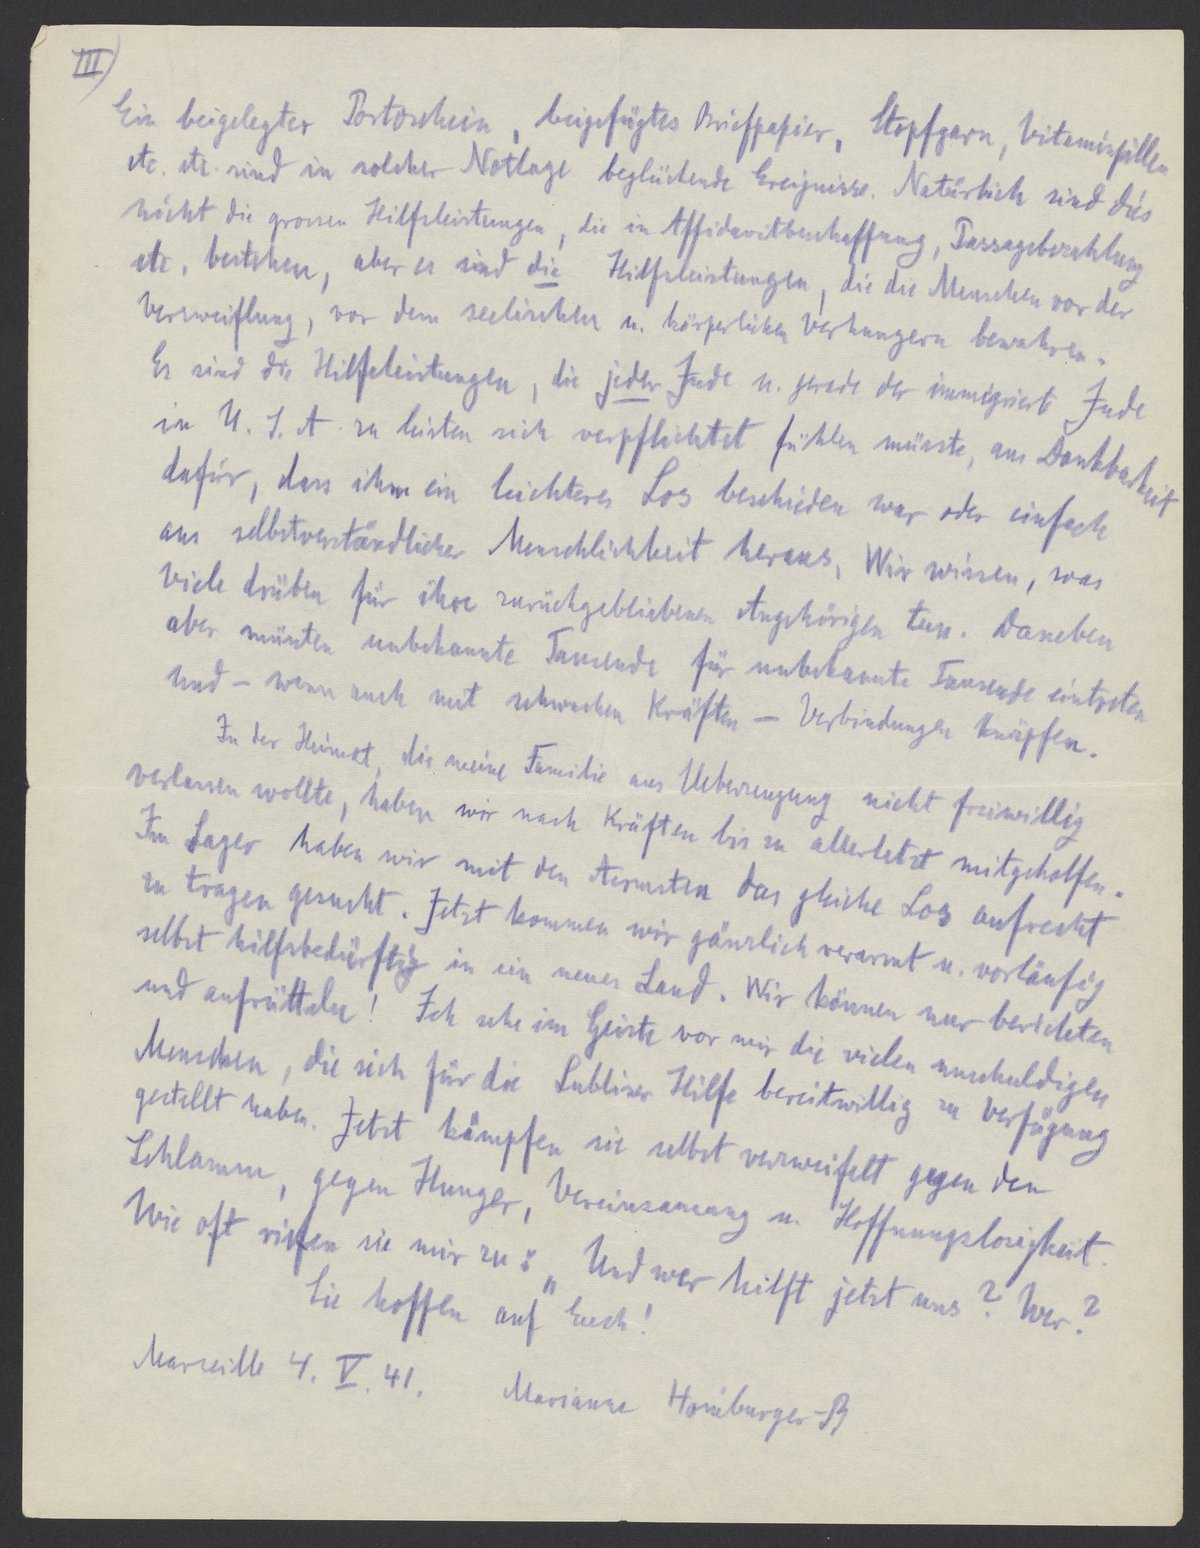 III)
Ein beigelegter Portoschein, beigefügtes Briefpapier, Stopfgarn, Vitaminpillen
etc. etc. sind in solcher Notlage beglückende Ereignisse. Natürlich sind dies
nicht die grossen Hilfsleistungen, die in Affidavitbeschaffung, Passagebezahlung
etc. bestehen, aber es sind die Hilfsleistungen, die die Menschen vor der
Verzweiflung, vor dem seelischen u. körperlichen Verhungern bewahren.
Es sind die Hilfeleistungen, die jeder Jude u. gerade der immigrierte Jude
in U.S.A. zu leisten sich verpflichtet fühlen müsste, aus Dankbarkeit
dafür, dass ihm ein leichteres Los beschieden war oder einfach
aus selbstverständlicher Menschlichkeit heraus. Wir wissen, was
viele drüben für ihre zurückgebliebenen Angehörigen tun. Daneben
aber müssten unbekannte Tausende für unbekannte Tausende eintreten
und – wenn auch mit schwachen Kräften – Verbindungen knüpfen.
In der Heimat, die meine Familie aus Ueberzeugung nicht freiwillig
verlassen wollte, haben wir nach Kräften bis zu allerletzt mitgeholfen.
Im Lager haben wir mit den Aermsten das gleiche Los aufrecht
zu tragen gesucht. Jetzt kommen wir gänzlich verarmt u. vorläufig
selbst hilfsbedürftig in ein neues Land. Wir können nur berichten
und aufrütteln! Ich sehe im Geiste vor mir die vielen unschuldigen
Menschen, die sich für die Lubliner Hilfe bereitwillig zu Verfügung
gestellt haben. Jetzt kämpfen sie selbst verzweifelt gegen den
Schlamm, gegen Hunger, Vereinsamung u. Hoffnungslosigkeit.
Wie oft riefen sie mir zu: „Und wer hilft jetzt uns? Wer?
Sie hoffen auf Euch!
Marseille 4. V. 41. Marianne Homburger-B